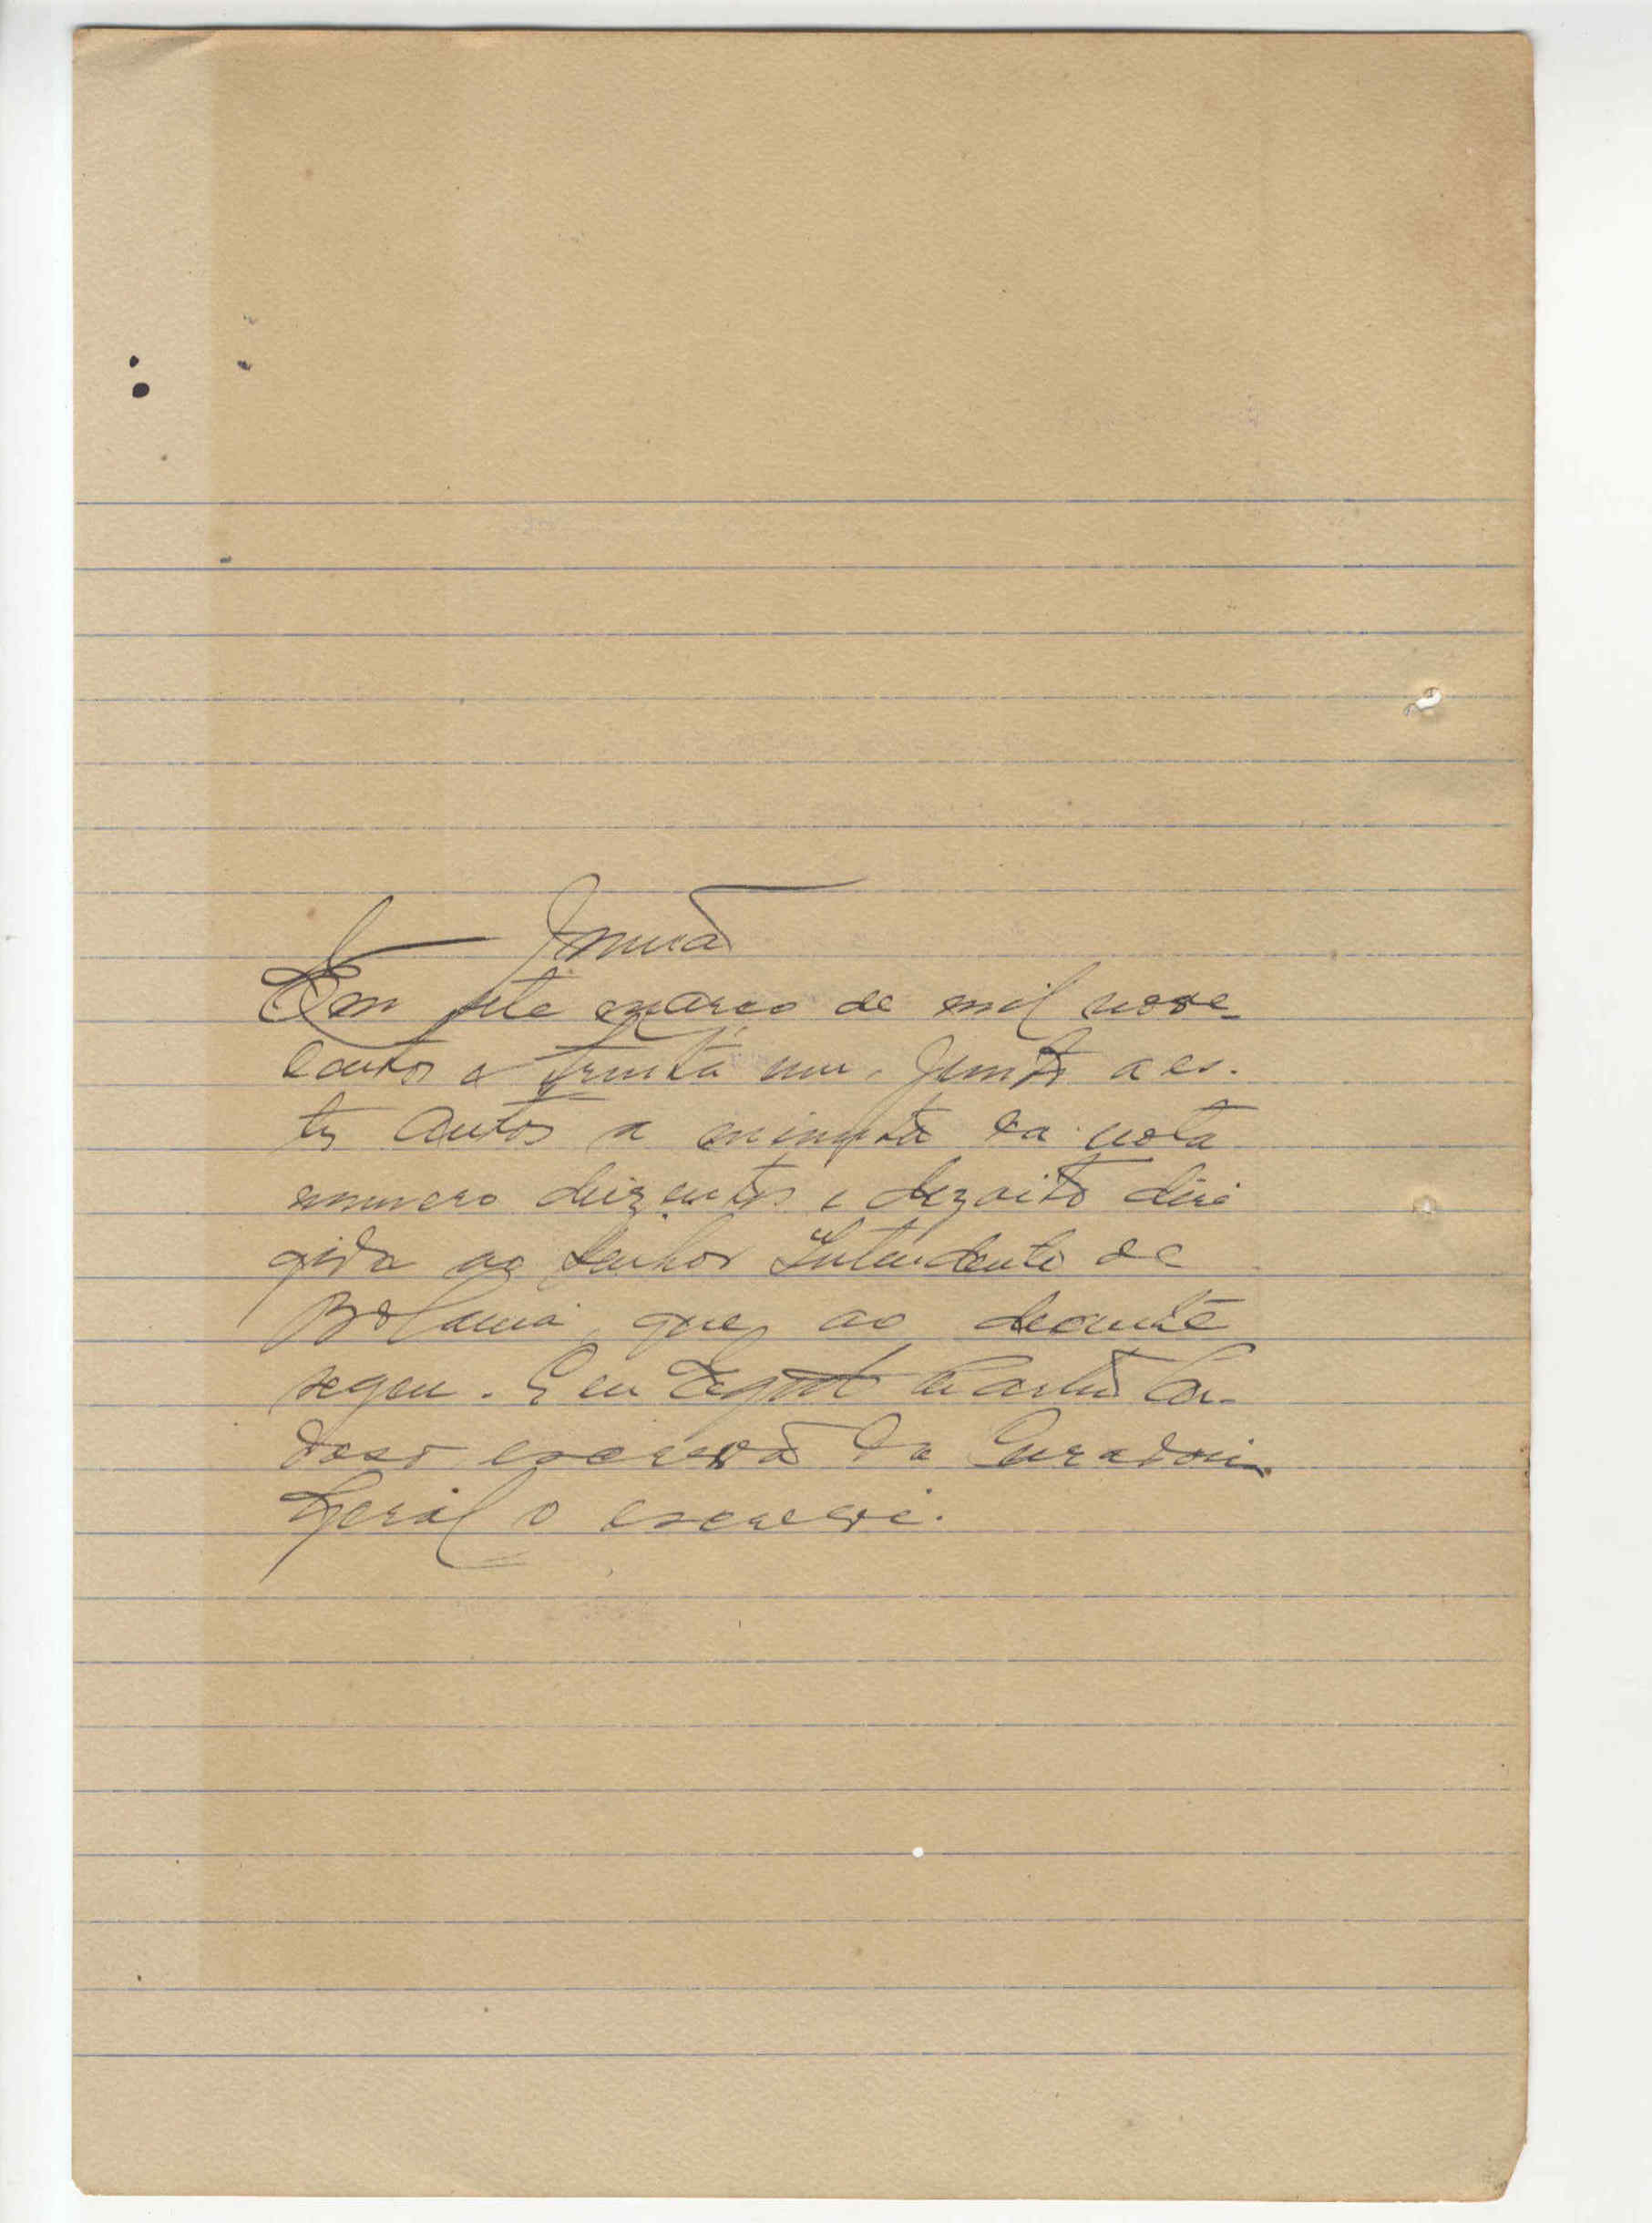 Juntada
Em sete março de mil nove-
centos e trinta um, junto a es-
tes autos a minuta da nota
numero duzentos e dezoito diri
gida ao Senhor Intendente de
Bolama, que ao deante
segue. E eu Cardo-
doso escrivão da Curadoria
Geral o escrevi.